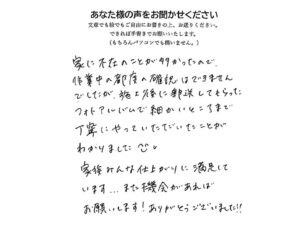 あなた様の声をお聞かせください
文章でも絵でもご自由にお書きの上、お送りください。
できれば手書きでお願いいたします。
(もちろんパソコンでも問いません。)
家に不在のことが多かったので、
作業中の都度の確認はできません
でしたが、施工後に郵送してもらった
フォトアルバムで細かいところまで
丁寧にやっていただいたことが
わかりました
家族みんな仕上がりに満足して
います...また機会があれば
お願いします!ありがとうございました!!